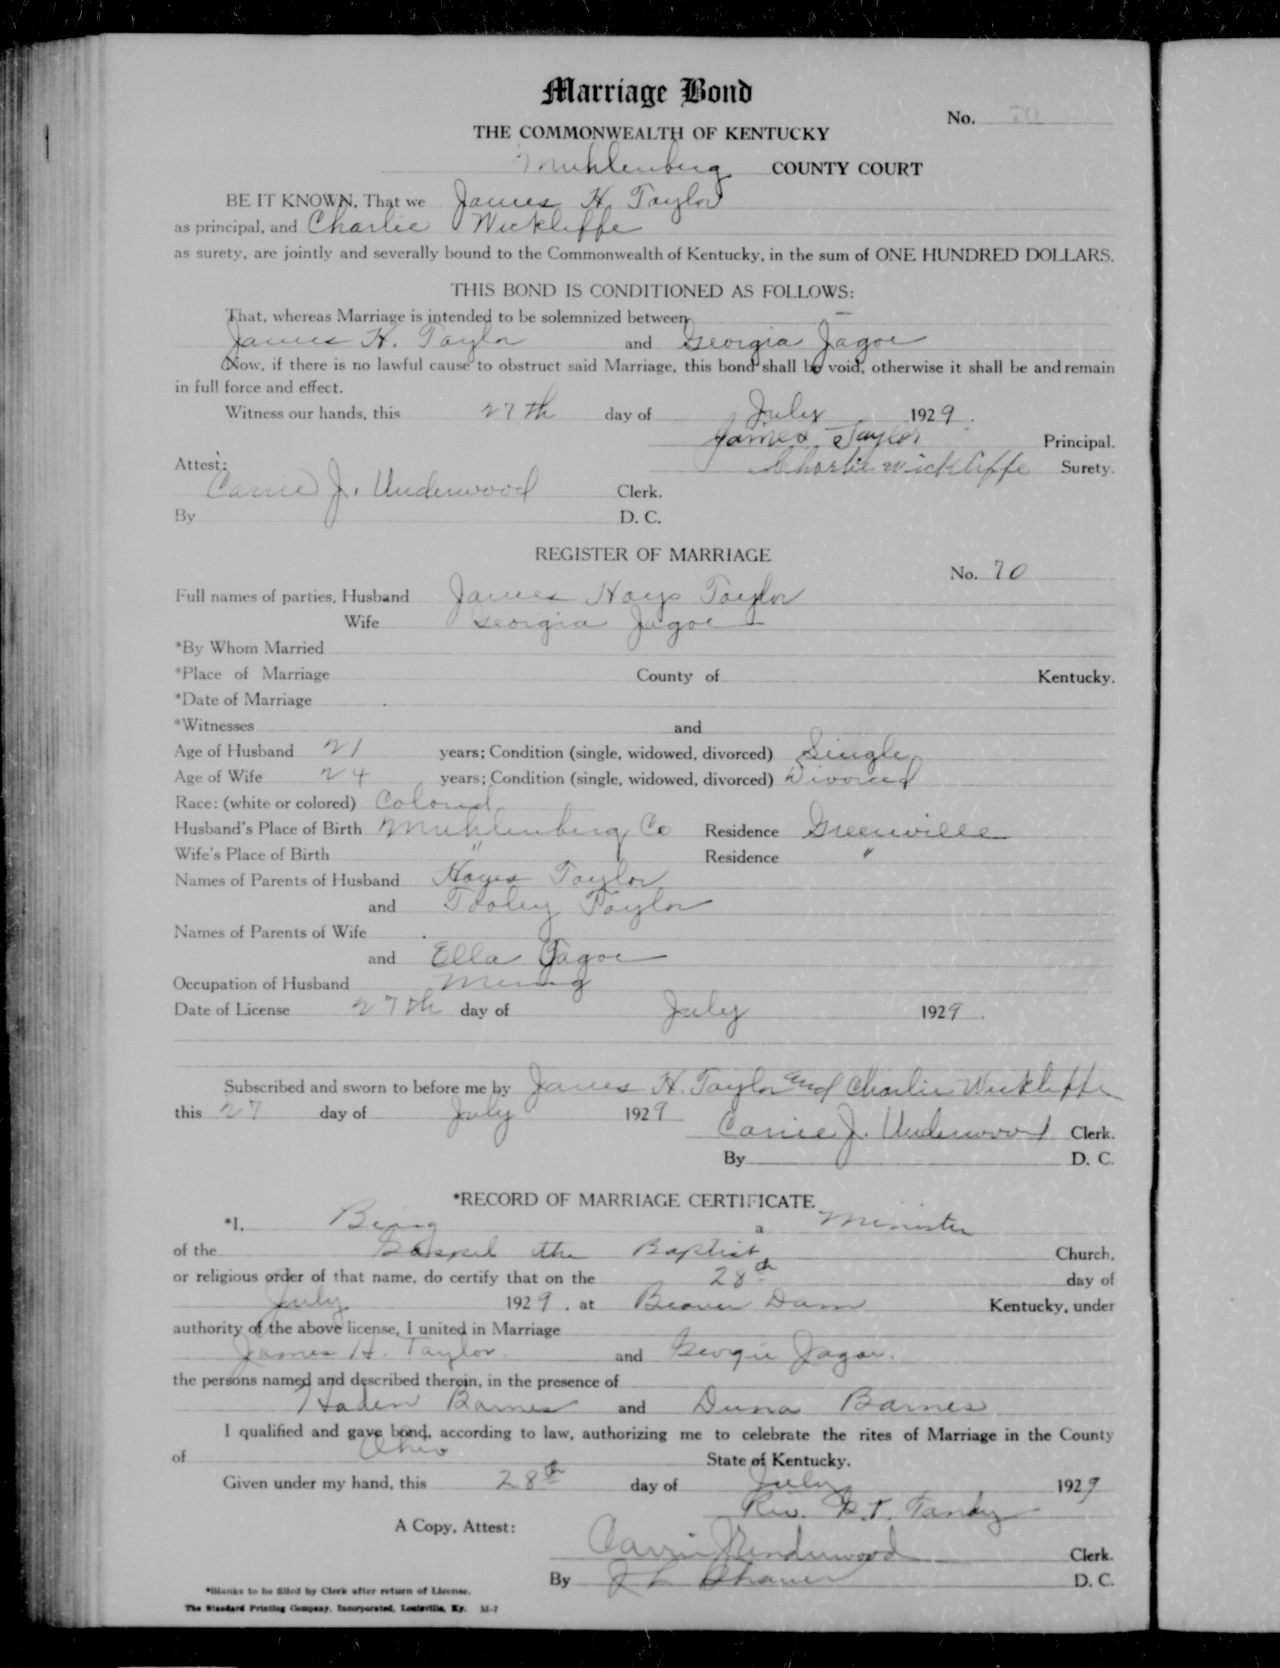 Marriage Bond
No. 70
THE COMMONWEALTH OF KENTUCKY
Muhlenberg COUNTY COURT
BE IT KNOWN, That we James H. Taylor
as principal, and Charlie Wickliffe
as surety, are jointly and severally bound to the Commonwealth of Kentucky, in the sum of ONE HUNDRED DOLLARS.
THIS BOND IS CONDITIONED AS FOLLOWS:
That, whereas Marriage is intended to be solemnized between
James H. Taylor and Georgia Jagoe
Now, if there is no lawful cause to obstruct said Marriage, this bond shall be void, otherwise it shall be and remain
in full force and effect.
Witness our hands, this 27th day of July 1929.
James Taylor Principal.
Charlie Wickliffe Surety.
Attest:
Carrie J. Underwood Clerk.
By D. C.
REGISTER OF MARRIAGE
No. 70
Full names of parties, Husband James Hays Taylor
Wife Georgia Jagoe
*By Whom Married
*Place of Marriage County of Kentucky.
*Date of Marriage
*Witnesses and
Age of Husband 21 years; Condition (single, widowed, divorced) Single
Age of Wife 24 years; Condition (single, widowed, divorced) Divorced
Race: (white or colored) Colored
Husband's Place of Birth Muhlenberg Co Residence Greenville
Wife's Place of Birth " Residence "
Names of Parents of Husband Hayes Taylor
and Tooley Taylor
Names of Parents of Wife
and Ella Jagoe
Occupation of Husband Mining
Date of License 27th day of July 1929.
Subscribed and sworn to before me by James H. Taylor and Charlie Wickliffe
this 27 day of July 1929
Carrie J. Underwood Clerk.
By D. C.
*RECORD OF MARRIAGE CERTIFICATE
*I, Being a Minister
of the Gospel the Baptist Church,
or religious order of that name, do certify that on the 28th day of
July 1929, at Beaver Dam Kentucky, under
authority of the above license, I united in Marriage
James H. Taylor. and Georgie Jagoe.
the persons named and described therein, in the presence of
Haden Barnes and Duna Barnes
I qualified and gave bond, according to law, authorizing me to celebrate the rites of Marriage in the County
of Ohio State of Kentucky.
Given under my hand, this 28th day of July 1929
Rev. Tandy
A Copy, Attest:
Carrie J Underwood Clerk.
By D. C.
*Blanks to be filled by Clerk after return of License.
The Standard Printing Company, Incorporated, Louisville, Ky. M-7